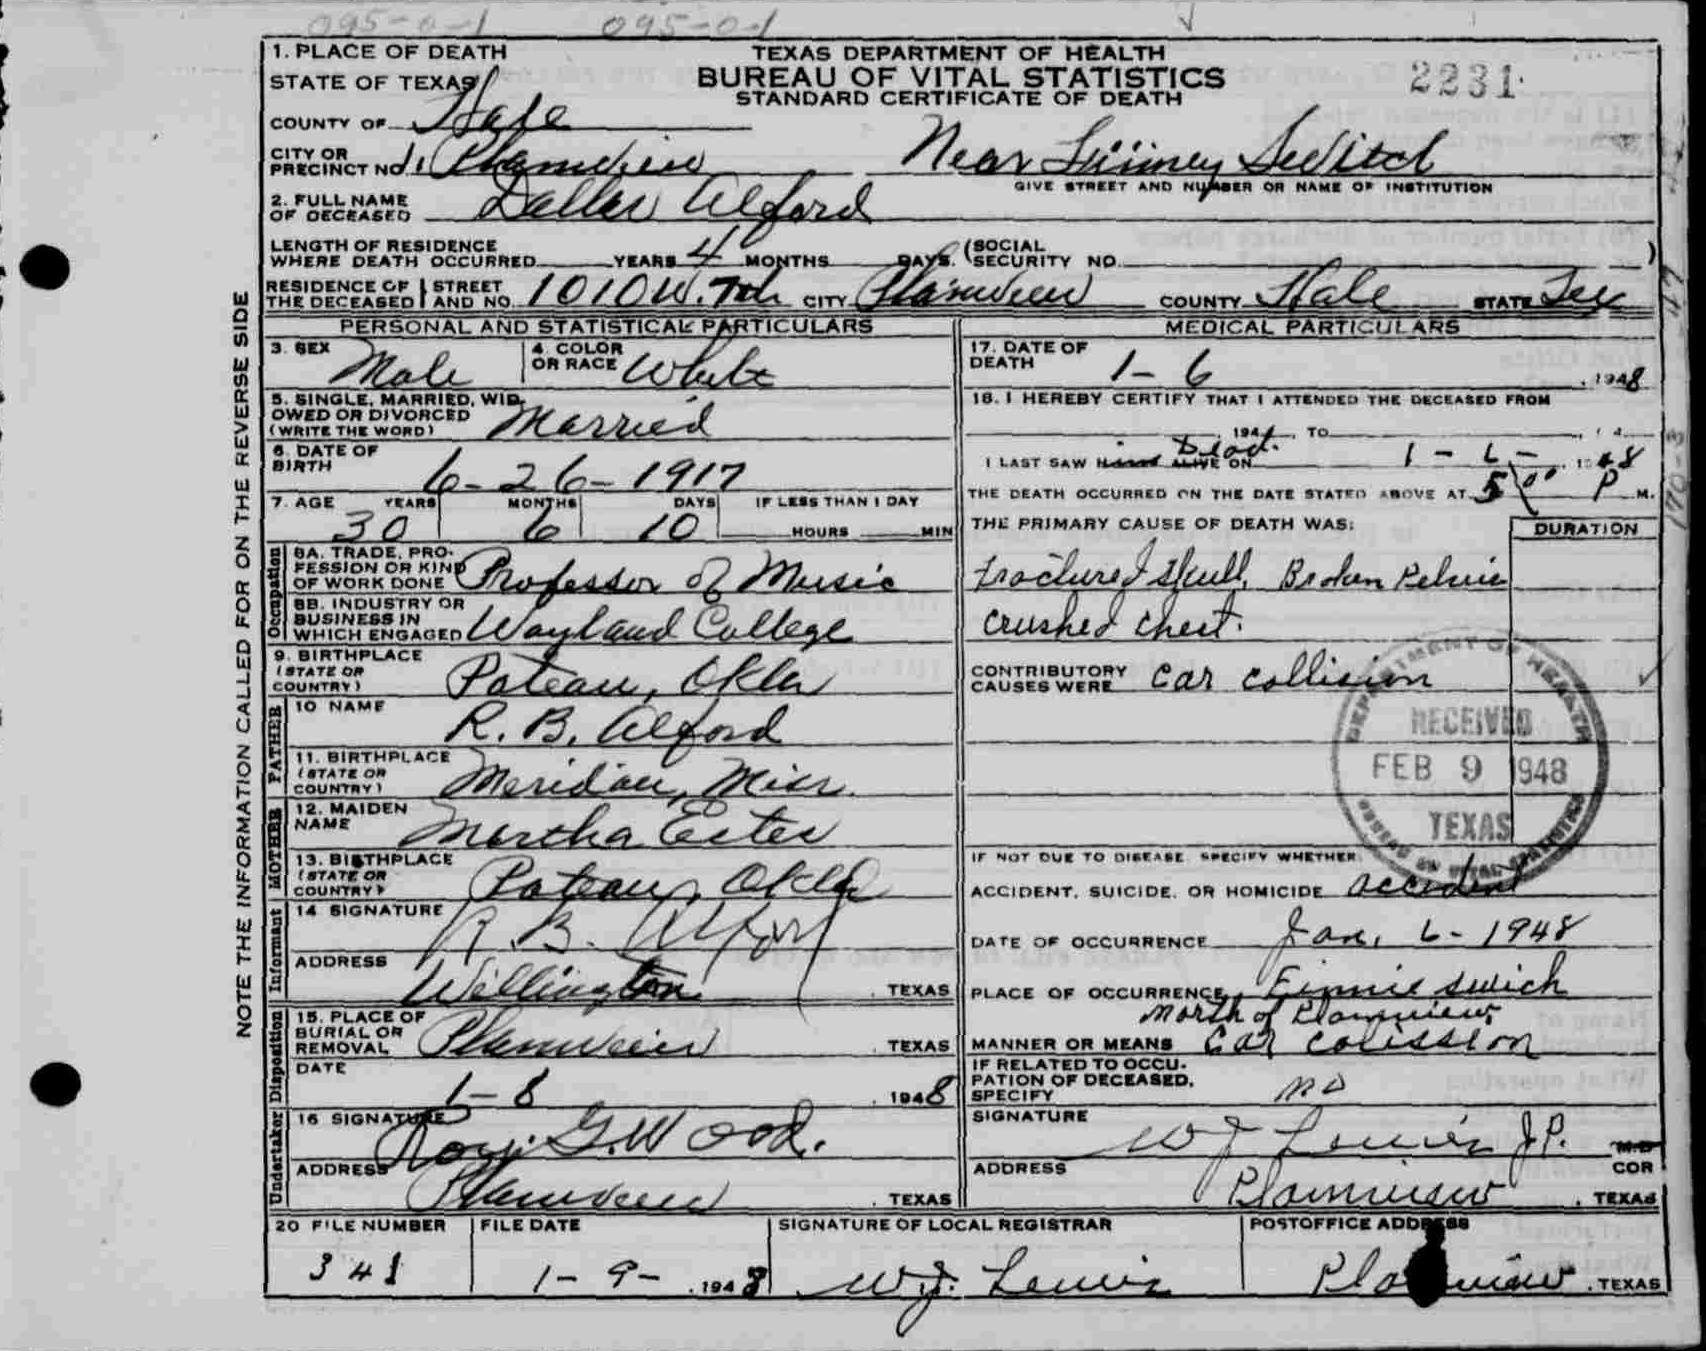 095-0-1 095-0-1
1. PLACE OF DEATH
STATE OF TEXAS
TEXAS DEPARTMENT OF HEALTH
BUREAU OF VITAL STATISTICS
STANDARD CERTIFICATE OF DEATH
2231
COUNTY OF Hale
CITY OR PRECINCT NO. 1. Plainview Near Finney Switch
GIVE STREET AND NUMBER OR NAME OF INSTITUTION
2. FULL NAME OF DECEASED Dallas Alford
LENGTH OF RESIDENCE WHERE DEATH OCCURRED YEARS 4 MONTHS DAYS. (SOCIAL SECURITY NO. )
RESIDENCE OF THE DECEASED STREET AND NO. 1010 W. 7th CITY Plainview COUNTY Hale STATE Tex
PERSONAL AND STATISTICAL PARTICULARS
3. SEX Male 4. COLOR OR RACE White
5. SINGLE, MARRIED, WIDOWED OR DIVORCED (WRITE THE WORD) Married
6. DATE OF BIRTH 6-26-1917
7. AGE YEARS MONTHS DAYS IF LESS THAN 1 DAY
30 6 10 HOURS MIN
Occupation
8A. TRADE, PROFESSION OR KIND OF WORK DONE Professor of Music
8B. INDUSTRY OR BUSINESS IN WHICH ENGAGED Wayland College
9. BIRTHPLACE (STATE OR COUNTRY) Poteau, Okla
FATHER
10 NAME R. B. Alford
11. BIRTHPLACE (STATE OR COUNTRY) Meridian, Miss.
MOTHER
12. MAIDEN NAME Martha Estes
13. BIRTHPLACE (STATE OR COUNTRY) Poteau, Okla
Informant
14 SIGNATURE R. B. Alford
ADDRESS Wellington, TEXAS
Disposition
15. PLACE OF BURIAL OR REMOVAL Plainview TEXAS
DATE 1-8 1948
Undertaker
16 SIGNATURE Roy G. Wood.
ADDRESS Plainview TEXAS
MEDICAL PARTICULARS
17. DATE OF DEATH 1-6, 1948
18. I HEREBY CERTIFY THAT I ATTENDED THE DECEASED FROM
194 , TO
I LAST SAW him ALIVE Dead. ON 1-6- 1948
THE DEATH OCCURRED ON THE DATE STATED ABOVE AT 5:00 P M.
THE PRIMARY CAUSE OF DEATH WAS: DURATION
Fractured Skull, Broken Pelvis
crushed chest.
CONTRIBUTORY CAUSES WERE Car collision
DEPARTMENT OF HEALTH
RECEIVED
FEB 9 1948
TEXAS
BUREAU OF VITAL STATISTICS
IF NOT DUE TO DISEASE, SPECIFY WHETHER
ACCIDENT, SUICIDE, OR HOMICIDE accident
DATE OF OCCURRENCE Jan. 6-1948
PLACE OF OCCURRENCE Finnie Swich
North of Plainview,
MANNER OR MEANS Car colission
IF RELATED TO OCCUPATION OF DECEASED, SPECIFY no
SIGNATURE W J Lewis J.P. M.D
ADDRESS COR
Plainview, TEXAS
20 FILE NUMBER FILE DATE SIGNATURE OF LOCAL REGISTRAR POSTOFFICE ADDRESS
341 1-9-, 1948 W.J. Lewis Plainview, TEXAS
NOTE THE INFORMATION CALLED FOR ON THE REVERSE SIDE